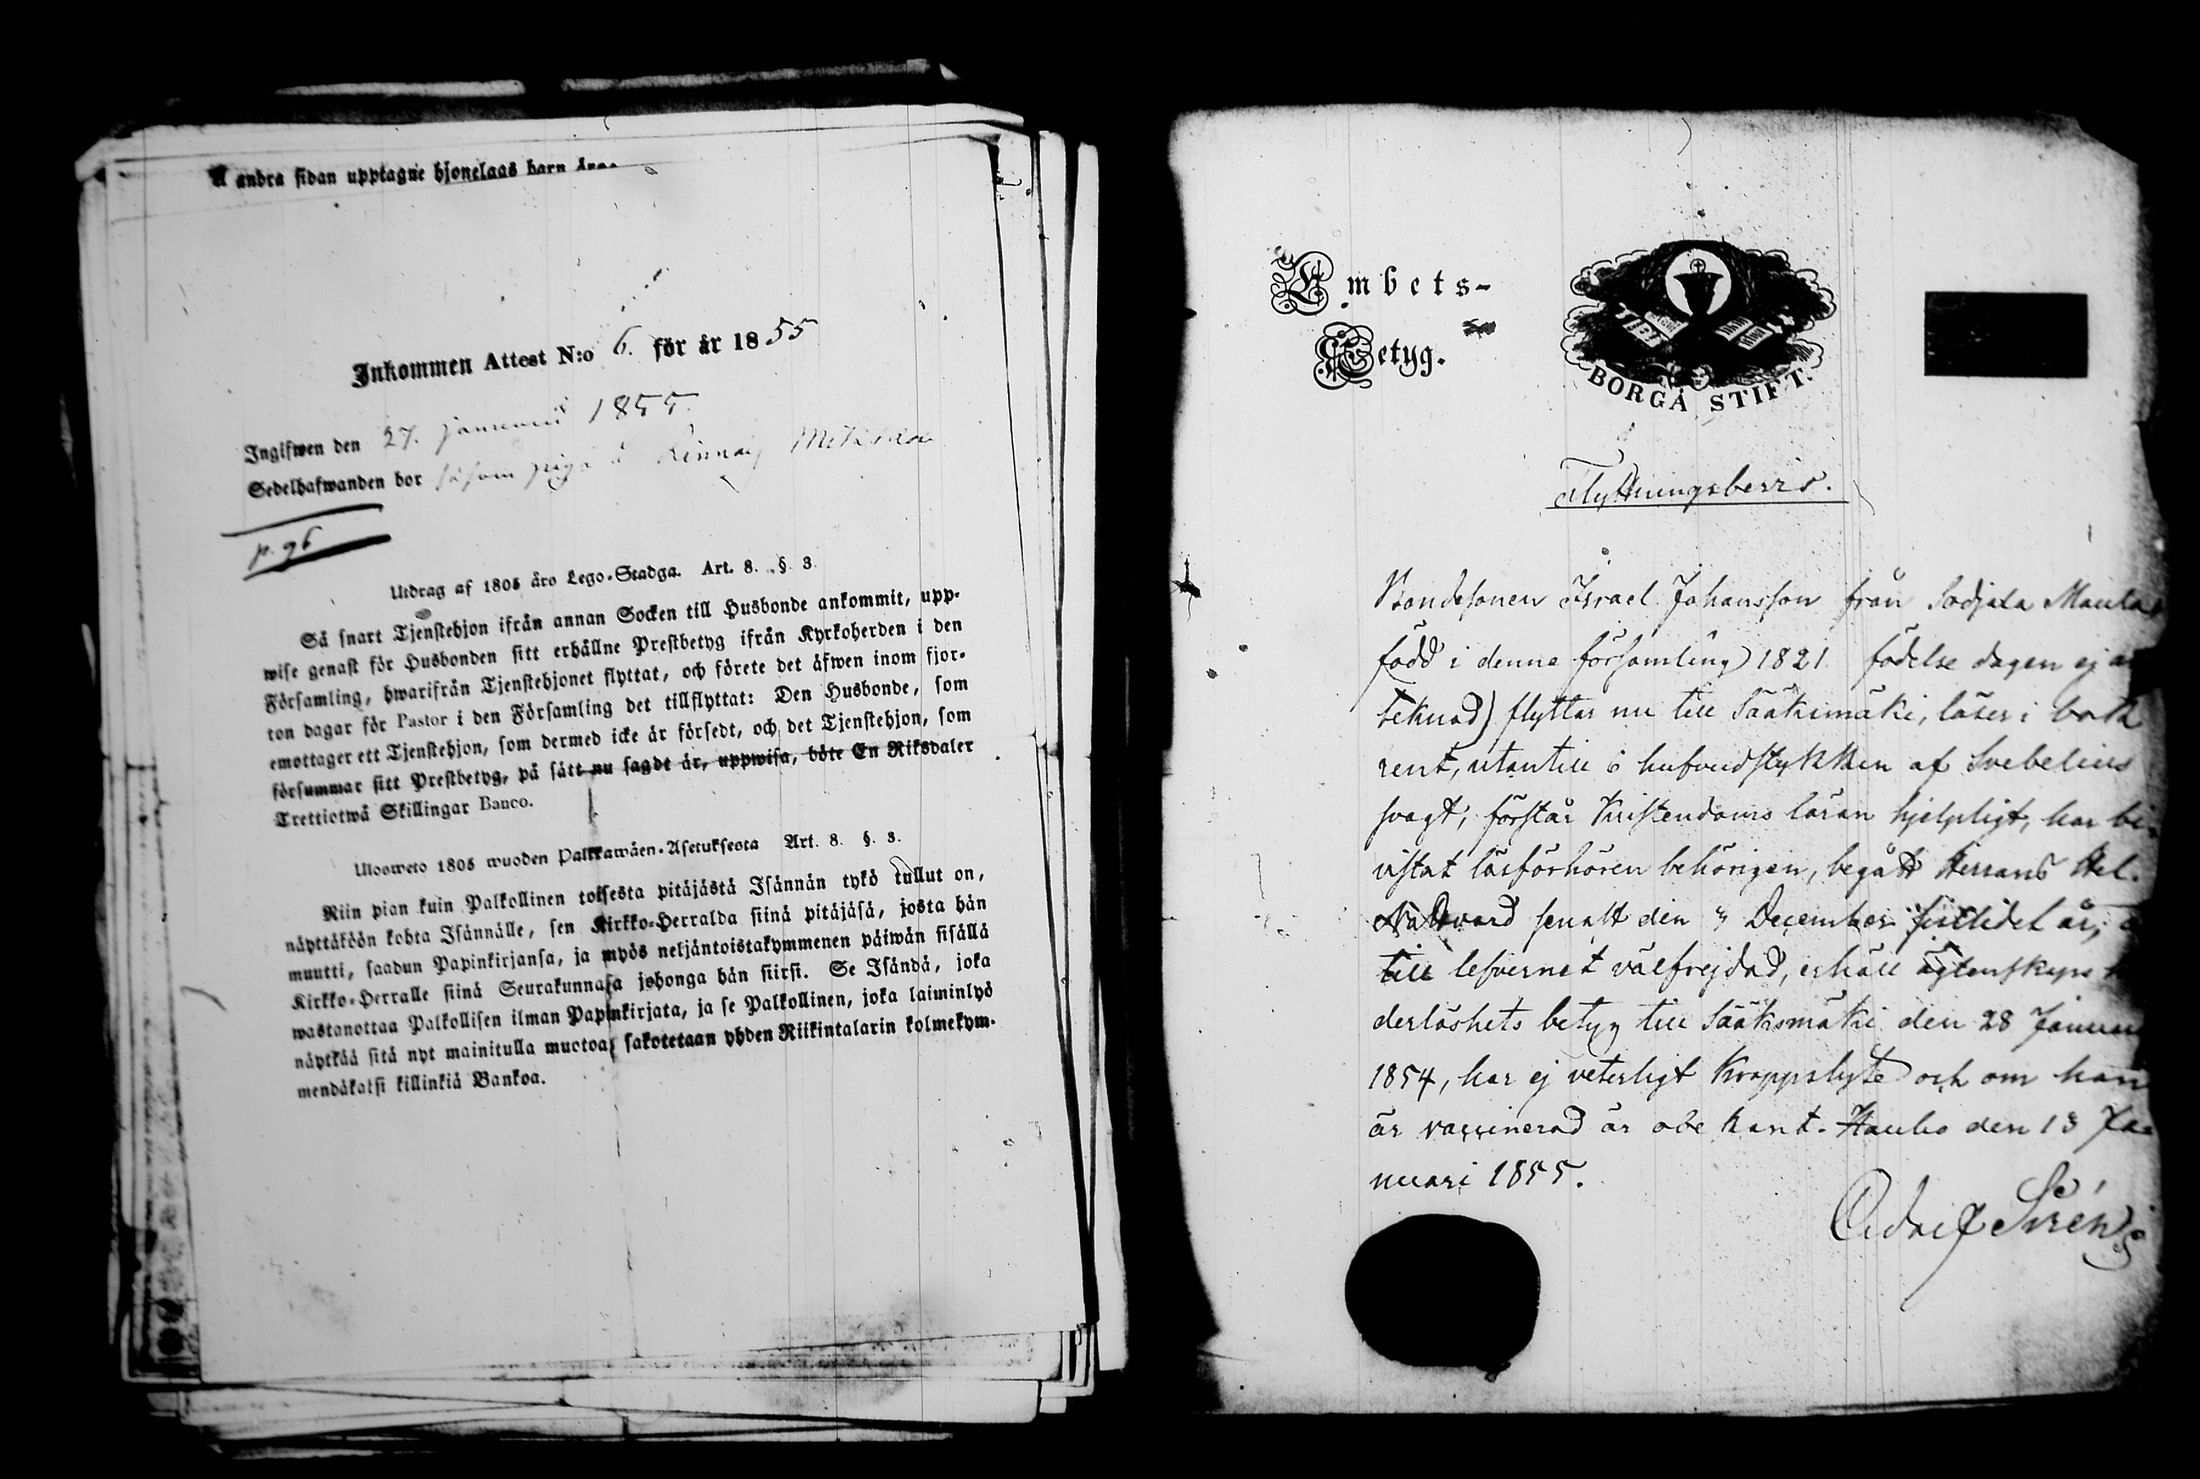 andra sidan upptagne hjonelags barn äro
Inkommen Attest N:o 6. för år 1855
Ingifwen den 27. januarii 1855.
Sedelhafwanden bor såsom piga
p. 96
Utdrag af 1805 års Lego-Stadga. Art. 8. §. 3.
Så snart Tjenstehjon ifrån annan Socken till Husbonde ankommit, upp-
wise genast för Husbonden sitt erhållne Prestbetyg ifrån Kyrkoherden i den
Församling, hwarifrån Tjenstehjonet flyttat, och förete det äfwen inom fjor-
ton dagar för Pastor i den Församling det tillflyttat: Den Husbonde, som
emottager ett Tjenstehjon, som dermed icke är försedt, och det Tjenstehjon, som
försummar sitt Prestbetyg, på sätt nu sagdt är, uppwisa, böte En Riksdaler
Trettiotwå Skillingar Banco.
Ulosweto 1805 wuoden Palkkawäen-Asetuksesta Art. 8. §. 3.
Niin pian kuin Palkollinen toisesta pitäjästä Isännän tykö tullut on,
näyttäköön kohta Isännälle, sen Kirkko-Herralda siinä pitäjäsä, josta hän
muutti, saadun Papinkirjansa, ja myös neljäntoistakymmenen päiwän sisällä
Kirkko-Herralle siinä Seurakunnasa johonga hän siirsi. Se Isändä, joka
wastanottaa Palkollisen ilman Papinkirjata, ja se Palkollinen, joka laiminlyö
näyttää sitä nyt mainitulla muotoa, sakotetaan yhden Riikintalarin kolmekym-
mendäkaksi killinkiä Bankoa.
Embets-
Betyg.
BORGÅ STIFT.
Flyttningsbevis.
Bondesonen Israel Johansson från Sodjala Maula
född i denna församling (1821 födelse dagen ej an
teknad) flyttar nu till Sääksmäki, läser i bok
rent, utantill 6 hufvudstykken af Svebelius
svagt, förstår Kristendoms läran hjelpligt, har bi-
vistat läsförhören behörigen, begått Herrans Hel.
Nattvard senast den 3 December sistlidet år, ä
till lefvernet välfrejdad, erhöll ägtenskaps h
derlöshets betyg till Sääksmäki den 28 Januari
1854, har ej veterligt kroppslyte och om han
är vaccinerad är obekant. Hauho den 13 Ja-
nuari 1855.
Adolf Sirén